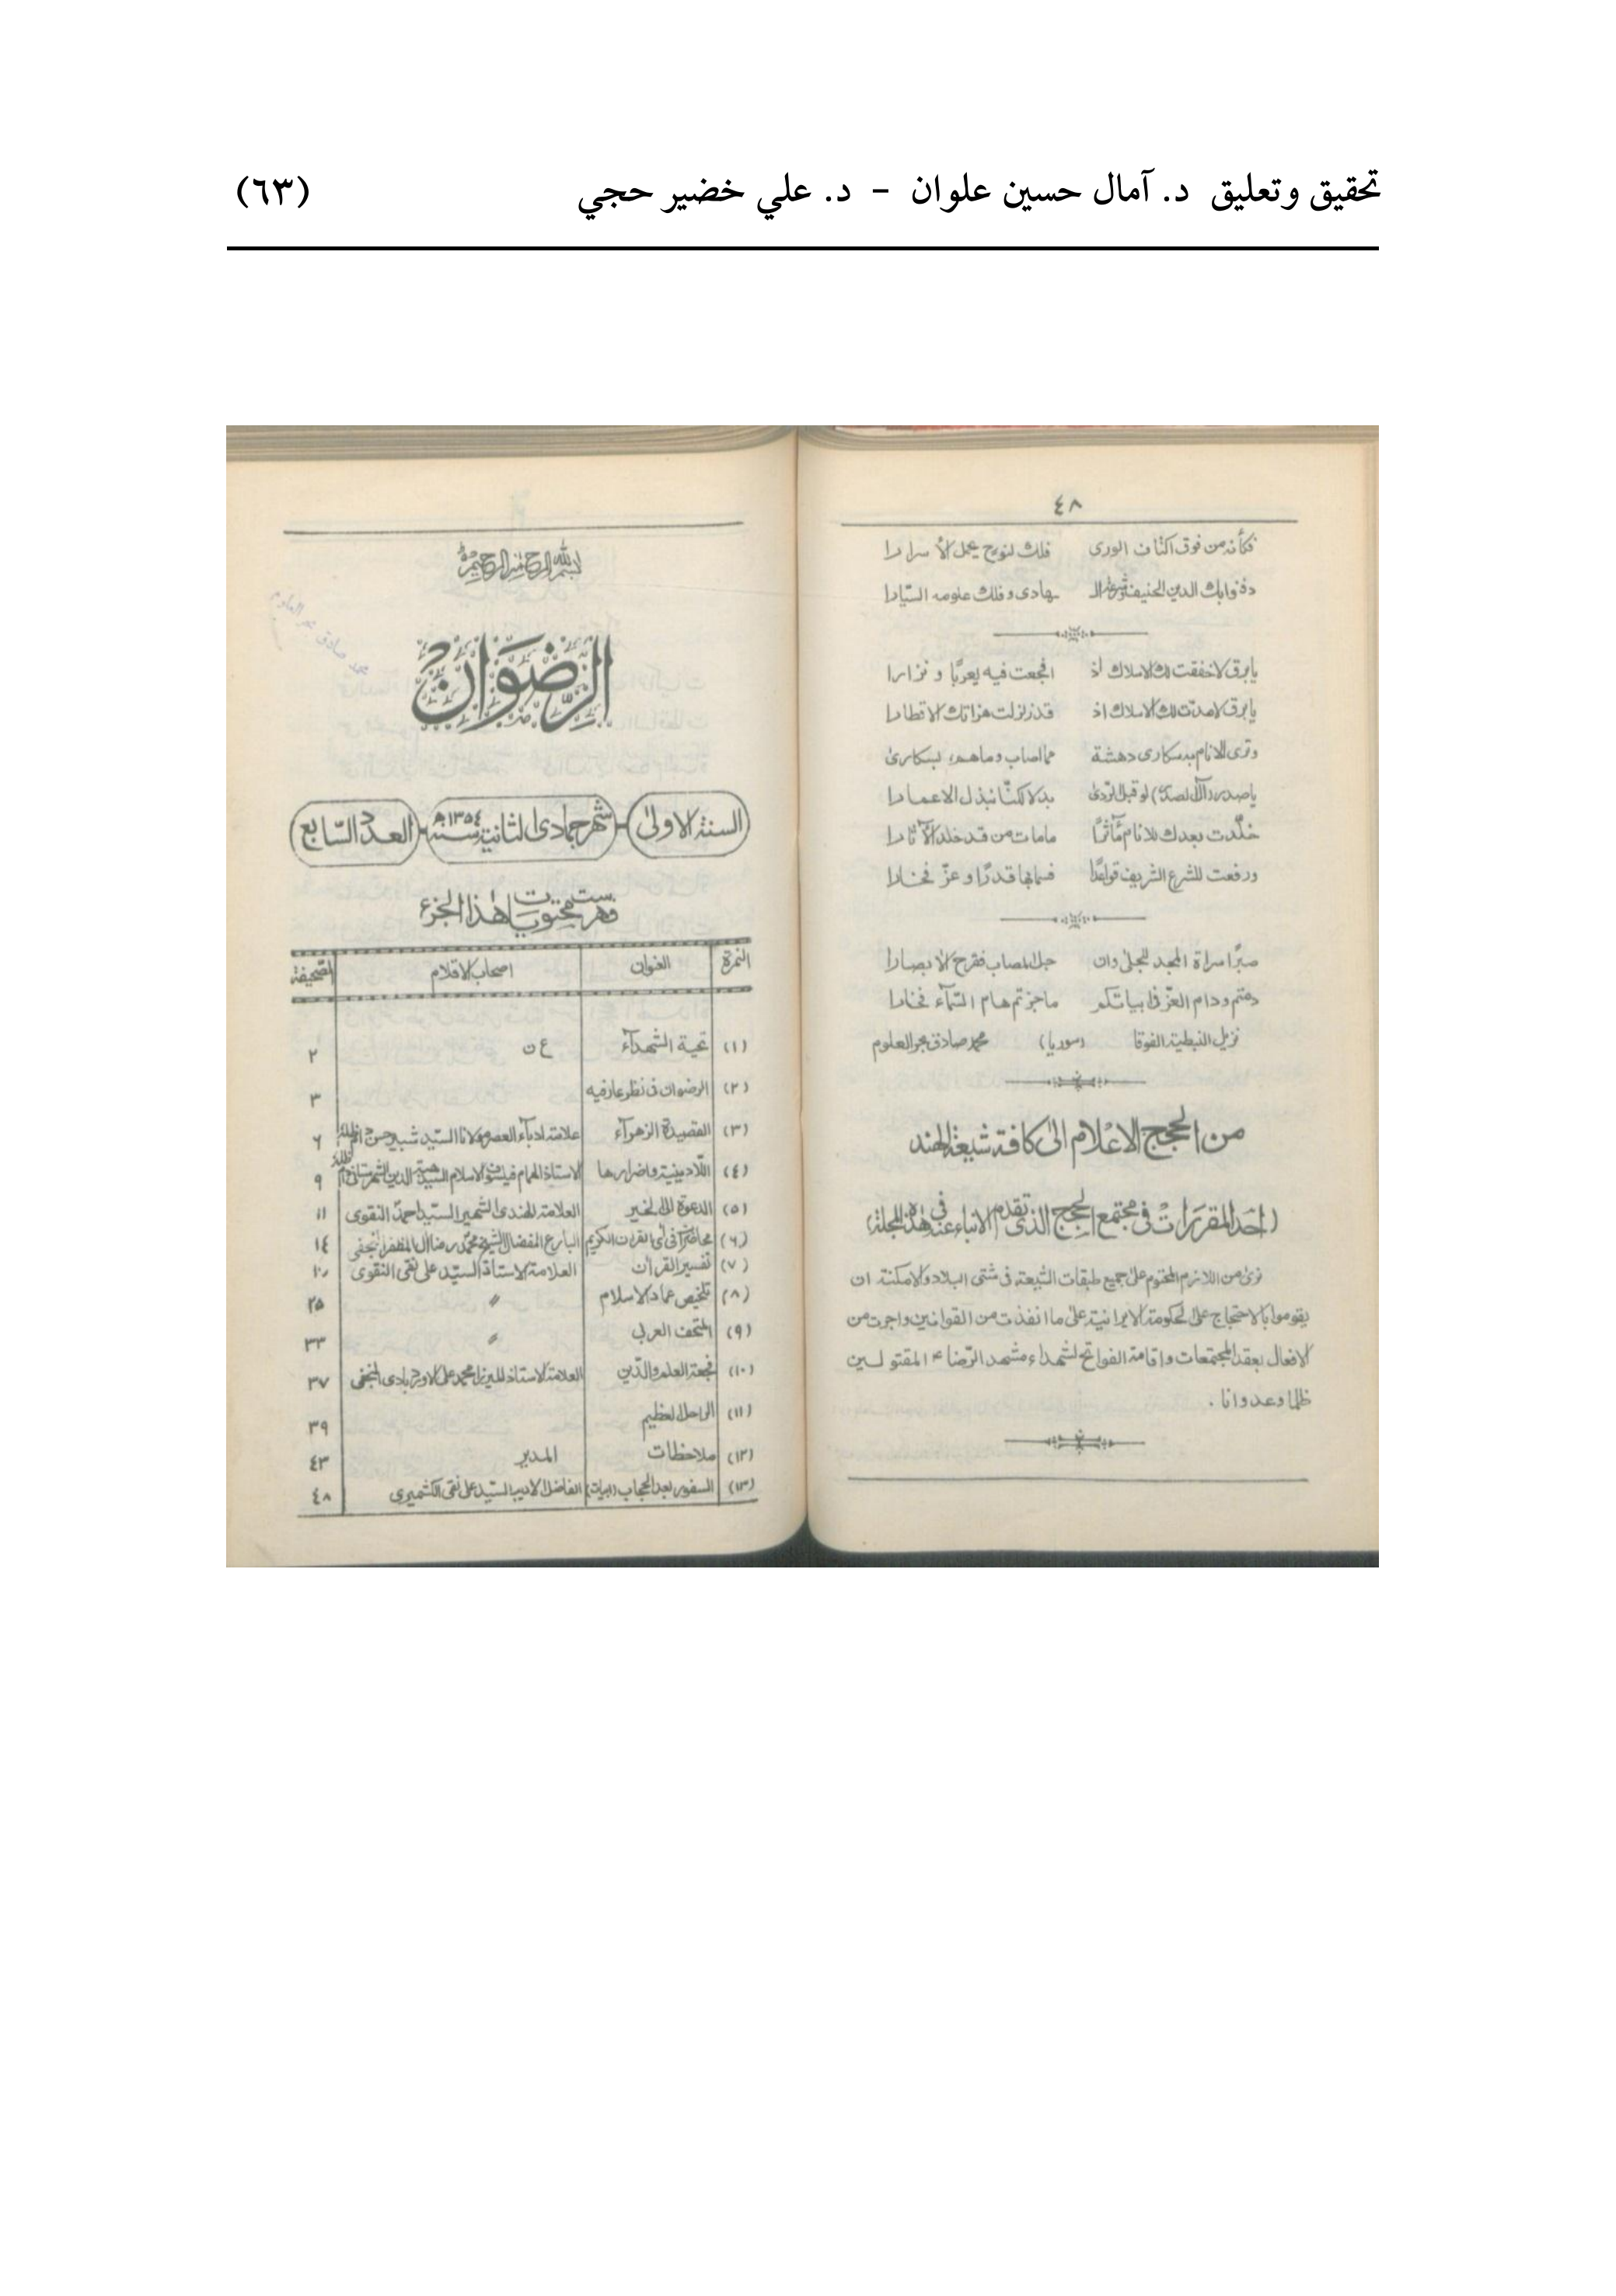 تحقيق وتعليق د. آمال حسين علوان – د. علي خضير حجي (٦٣)
٤٨
فكأنه من فوق اكتاف الورى فلك لنوح يحمل الأسرارا
دفنوا بك الدين الحنيف الهادى وفلك علومه السيّارا
يا برق لاخفقت لك الاسلاك اذ افجعت فيه يعربًا و نزارا
يا برق لامدت لك الاسلاك اذ قد زلزلت هزاتك الاقطارا
وترى الانام به سكارى دهشة مما اصاب وما هم بسكارىٰ
ياصدر (آل الصدر) لو قبل الردىٰ بدلا لكنّا نبذل الاعمارا
خلّدت بعدك للانام مآثرًا مامات من قد خلد الآثارا
ورفعت للشرع الشريف قواعدًا فسما بها قدرًا و عزّ فخارا
صبرًا سراة المجد للجلى وان جل المصاب فقرح الابصارا
دمتم ودام العز فى ابياتكم ما جزتم هام السمآء فخارا
نزيل النبطية الفوقا (سوريا) محمد صادق بحر العلوم
من الحجج الاعلام الىٰ كافة شيعة الهند
(احد المقررات فى مجتمع الحجج الذى تقدم الانباء عنه فى هذه المجلة)
نرىٰ من اللازم المحتوم علىٰ جميع طبقات الشيعة فى شتى البلاد والامكنة ان
يقوموا بالاحتجاج على الحكومة الايرانية علىٰ ما انفذت من القوانين واجرت من
الافعال بعقد المجتمعات واقامة الفواتح لشهداء مشهد الرضاء ع المقتولين
ظلما وعدوانا .
بسم الله الرحمن الرحيم
الرضوان
السنة الاولىٰ شهر جمادى الثانية سنة ١٣٥٤ه العدد السّابع
فهرست محتويات هٰذا الجزء
النمرة العنوان اصحاب الاقلام الصحيفة
(١) تحية الشهدآء ع ن ٢
(٢) الرضوان فى نظر عارفيه ٣
(٣) القصيدة الزهرآء علامة ادبآء العصر مولانا السيّد شبير حسن ٦
(٤) اللّادينية واضرارها الاستاذ الهمام فيلسوف الاسلام السيد هبة الدين الشهرستانى ٩
(٥) الدعوة الى الخير العلامة الهندى الشهير السيّد احمد النقوى ١١
(٦) محاضرة فى آى القرآن الكريم البارع المفضال الشيخ محمّد رضا آل المظفر النجفى ١٤
(٧) تفسير القرآن العلامة الاستاذ السيّد على نقى النقوى
(٨) تلخيص عماد الاسلام 〃 ٢٥
(٩) المتحف العربى 〃 ٣٣
(١٠) فجعة العلم والدّين العلامة الاستاذ الميرزا محمد على الاوردبادى النجفى ٣٧
(١١) الراحل العظيم ٣٩
(١٢) ملاحظات المدير ٤٣
(١٣) السفور بعد الحجاب (ابيات) الفاضل الاديب السيّد على نقى الكشميرى ٤٨